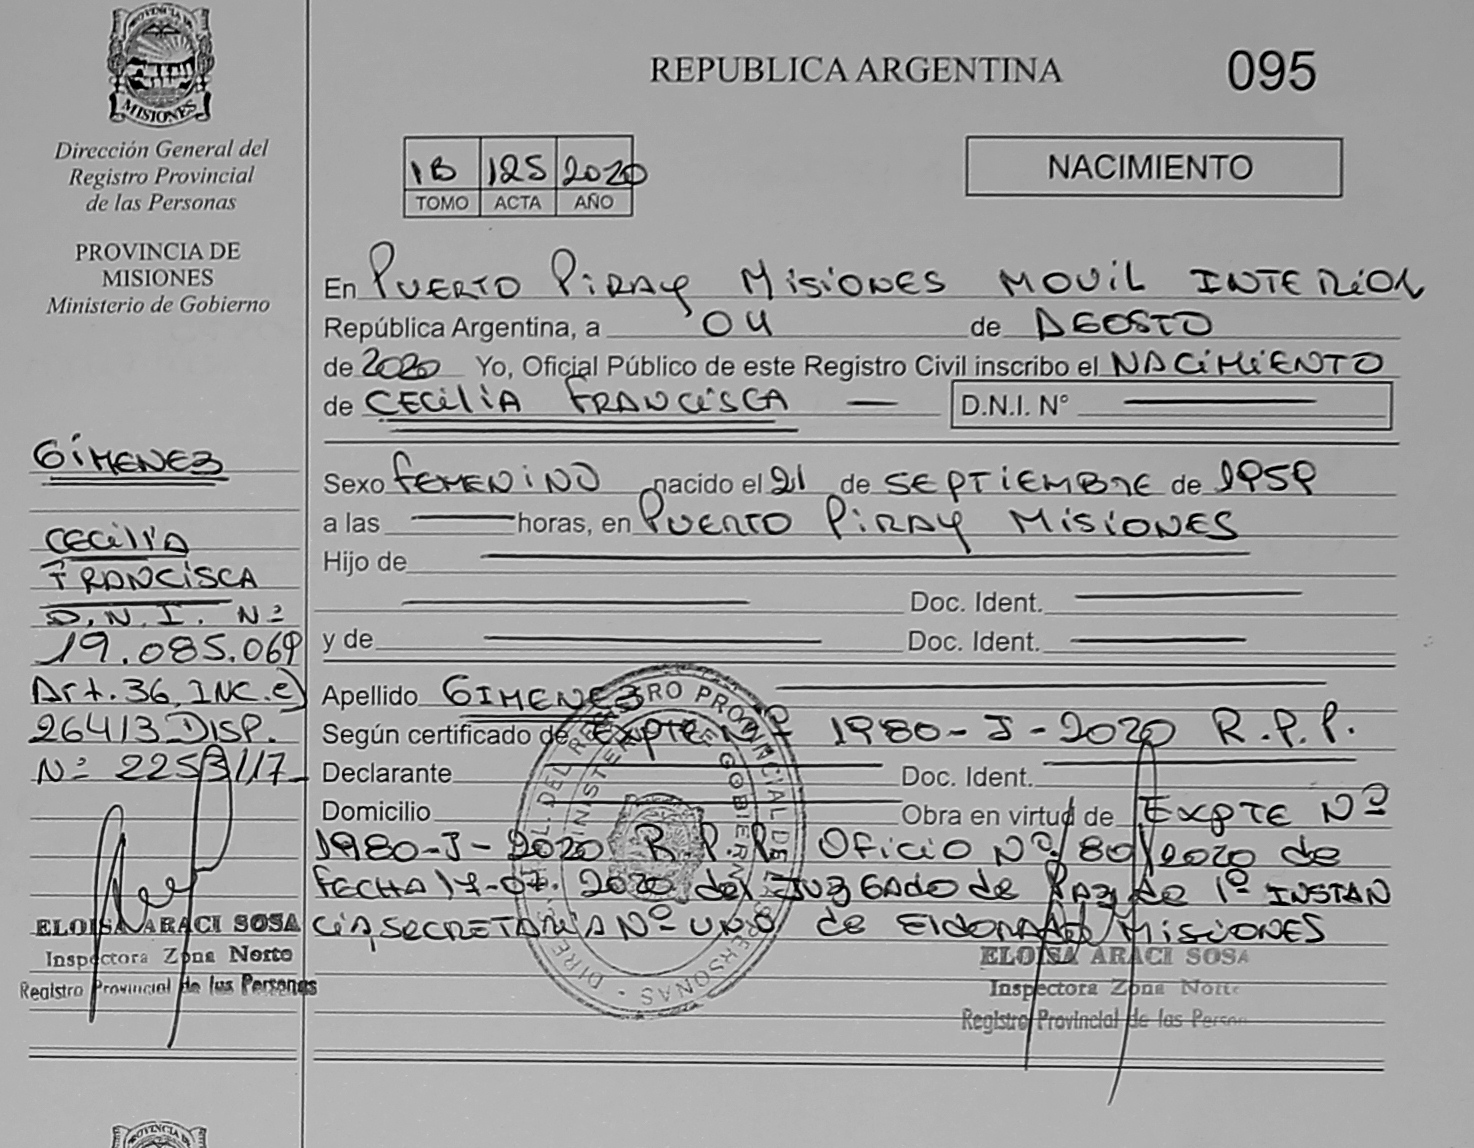 PROVINCIA DE
MISIONES
Dirección General del
Registro Provincial
de las Personas
PROVINCIA DE
MISIONES
Ministerio de Gobierno
GIMENEZ
CECILIA
FRANCISCA
D.N.I. Nº
19.085.069
Art. 36, INC. e)
26413 DISP.
Nº 2253/17
ELOISA ARACI SOSA
Inspectora Zona Norte
Registro Provincial de las Personas
REPUBLICA ARGENTINA 095
1B 125 2020
TOMO ACTA AÑO
NACIMIENTO
En PUERTO PIRAY MISIONES MOVIL INTERIOR
República Argentina, a 04 de AGOSTO
de 2020 Yo, Oficial Público de este Registro Civil inscribo el NACIMIENTO
de CECILIA FRANCISCA — D.N.I. N° —
Sexo FEMENINO nacido el 21 de SEPTIEMBRE de 1959
a las — horas, en PUERTO PIRAY MISIONES
Hijo de —
— Doc. Ident. —
y de — Doc. Ident. —
Apellido GIMENEZ —
Según certificado de EXPTE Nº 1980-J-2020 R.P.P.
Declarante — Doc. Ident. —
Domicilio — Obra en virtud de EXPTE Nº
1980-J-2020 R.P.P. OFICIO Nº 80/2020 de
FECHA 17-07-2020 del JUZGADO de PAZ de 1º INSTAN
CIA SECRETARIA Nº UNO de ELDORADO MISIONES
ELOISA ARACI SOSA
Inspectora Zona Norte
Registro Provincial de las Person
DIREC. GRAL. DEL REGISTRO PROVINCIAL DE LAS PERSONAS
MINISTERIO DE GOBIERNO
PROVINCIA DE